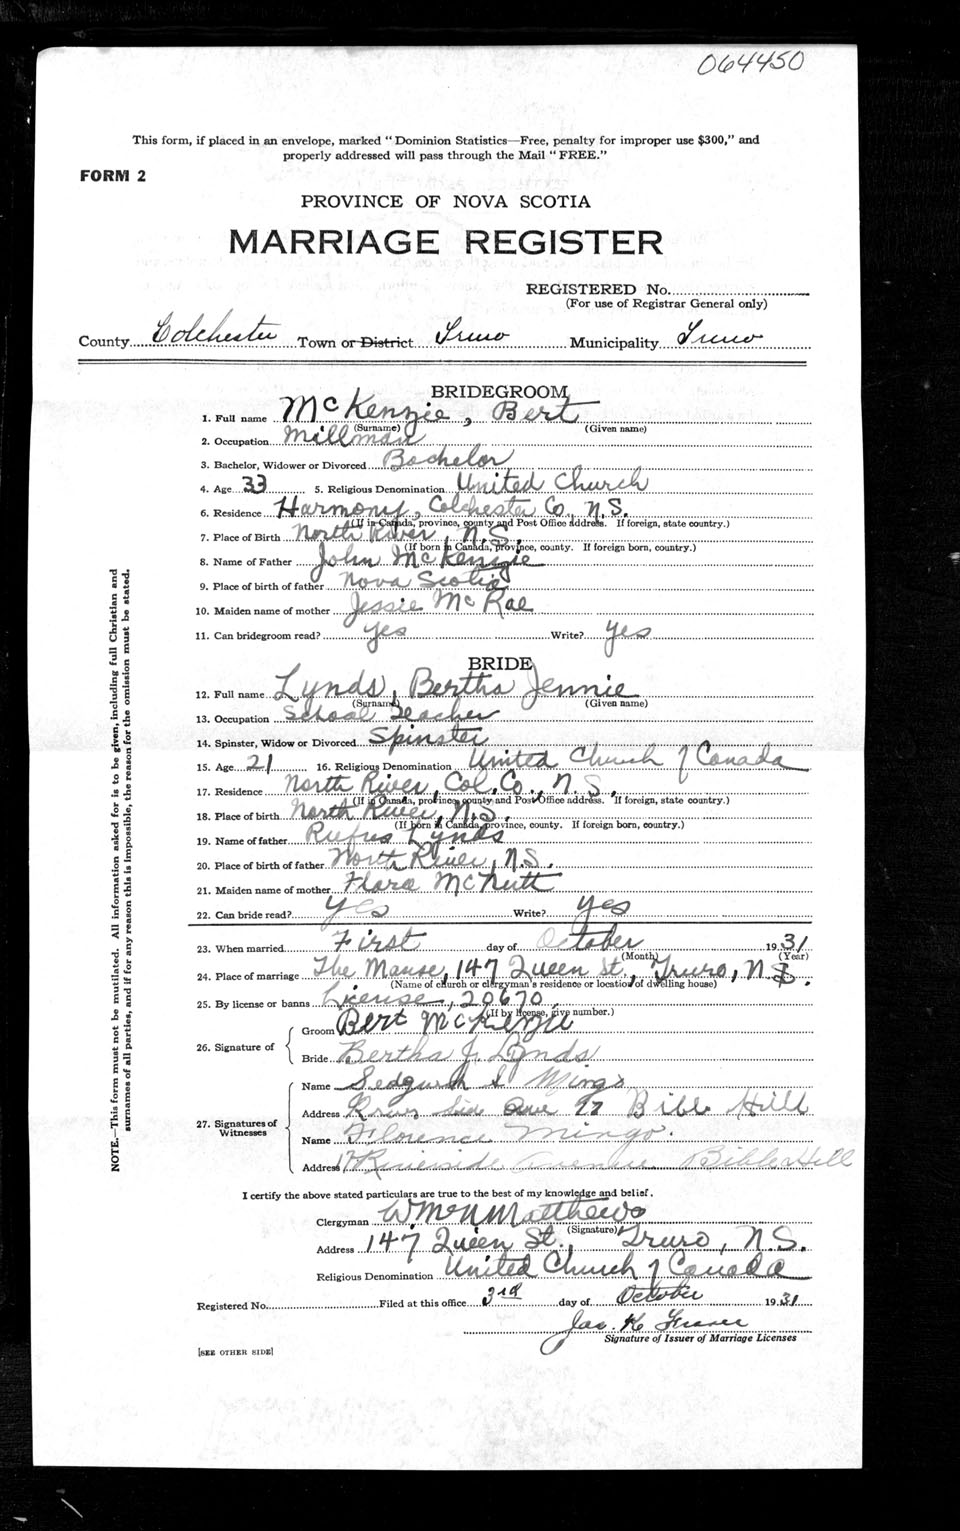 064450
This form, if placed in an envelope, marked "Dominion Statistics—Free, penalty for improper use $300," and
properly addressed will pass through the Mail "FREE."
FORM 2
PROVINCE OF NOVA SCOTIA
MARRIAGE REGISTER
REGISTERED No.
(For use of Registrar General only)
County Colchester Town or District Truro Municipality Truro
BRIDEGROOM
1. Full name McKenzie, Bert
(Surname) (Given name)
2. Occupation Millman
3. Bachelor, Widower or Divorced Bachelor
4. Age 33 5. Religious Denomination United Church
6. Residence Harmony, Colchester Co., N.S.
(If in Canada, province, county and Post Office address. If foreign, state country.)
7. Place of Birth North River, N.S.
(If born in Canada, province, county. If foreign born, country.)
8. Name of Father John McKenzie
9. Place of birth of father Nova Scotia
10. Maiden name of mother Jessie McRae
11. Can bridegroom read? yes Write? yes
BRIDE
12. Full name Lynds, Bertha Jennie
(Surname) (Given name)
13. Occupation School Teacher
14. Spinster, Widow or Divorced Spinster
15. Age 21 16. Religious Denomination United Church of Canada
17. Residence North River, Col. Co., N.S.
(If in Canada, province, county and Post Office address. If foreign, state country.)
18. Place of birth North River, N.S.
(If born in Canada, province, county. If foreign born, country.)
19. Name of father Rufus Lynds
20. Place of birth of father North River, N.S.
21. Maiden name of mother Flora McNutt
22. Can bride read? yes Write? yes
23. When married First day of October 1931
(Month) (Year)
24. Place of marriage The Manse, 147 Queen St., Truro, N.S.
(Name of church or clergyman's residence or location of dwelling house)
25. By license or banns License, 20670
(If by license, give number.)
26. Signature of Groom Bert McKenzie
Bride Bertha J. Lynds
27. Signatures of Witnesses
Name Mingo
Address Side Ave 17 Bible Hill
Name Florence Mingo.
Address 17 Riverside Avenue Bible Hill
I certify the above stated particulars are true to the best of my knowledge and belief.
Clergyman W. McN Matthews
(Signature)
Address 147 Queen St., Truro, N.S.
Religious Denomination United Church of Canada
Registered No. Filed at this office 3rd day of October 1931
Jas. K. Fraser
Signature of Issuer of Marriage Licenses
[SEE OTHER SIDE]
NOTE.—This form must not be mutilated. All information asked for is to be given, including full Christian and
surnames of all parties, and if for any reason this is impossible, the reason for the omission must be stated.